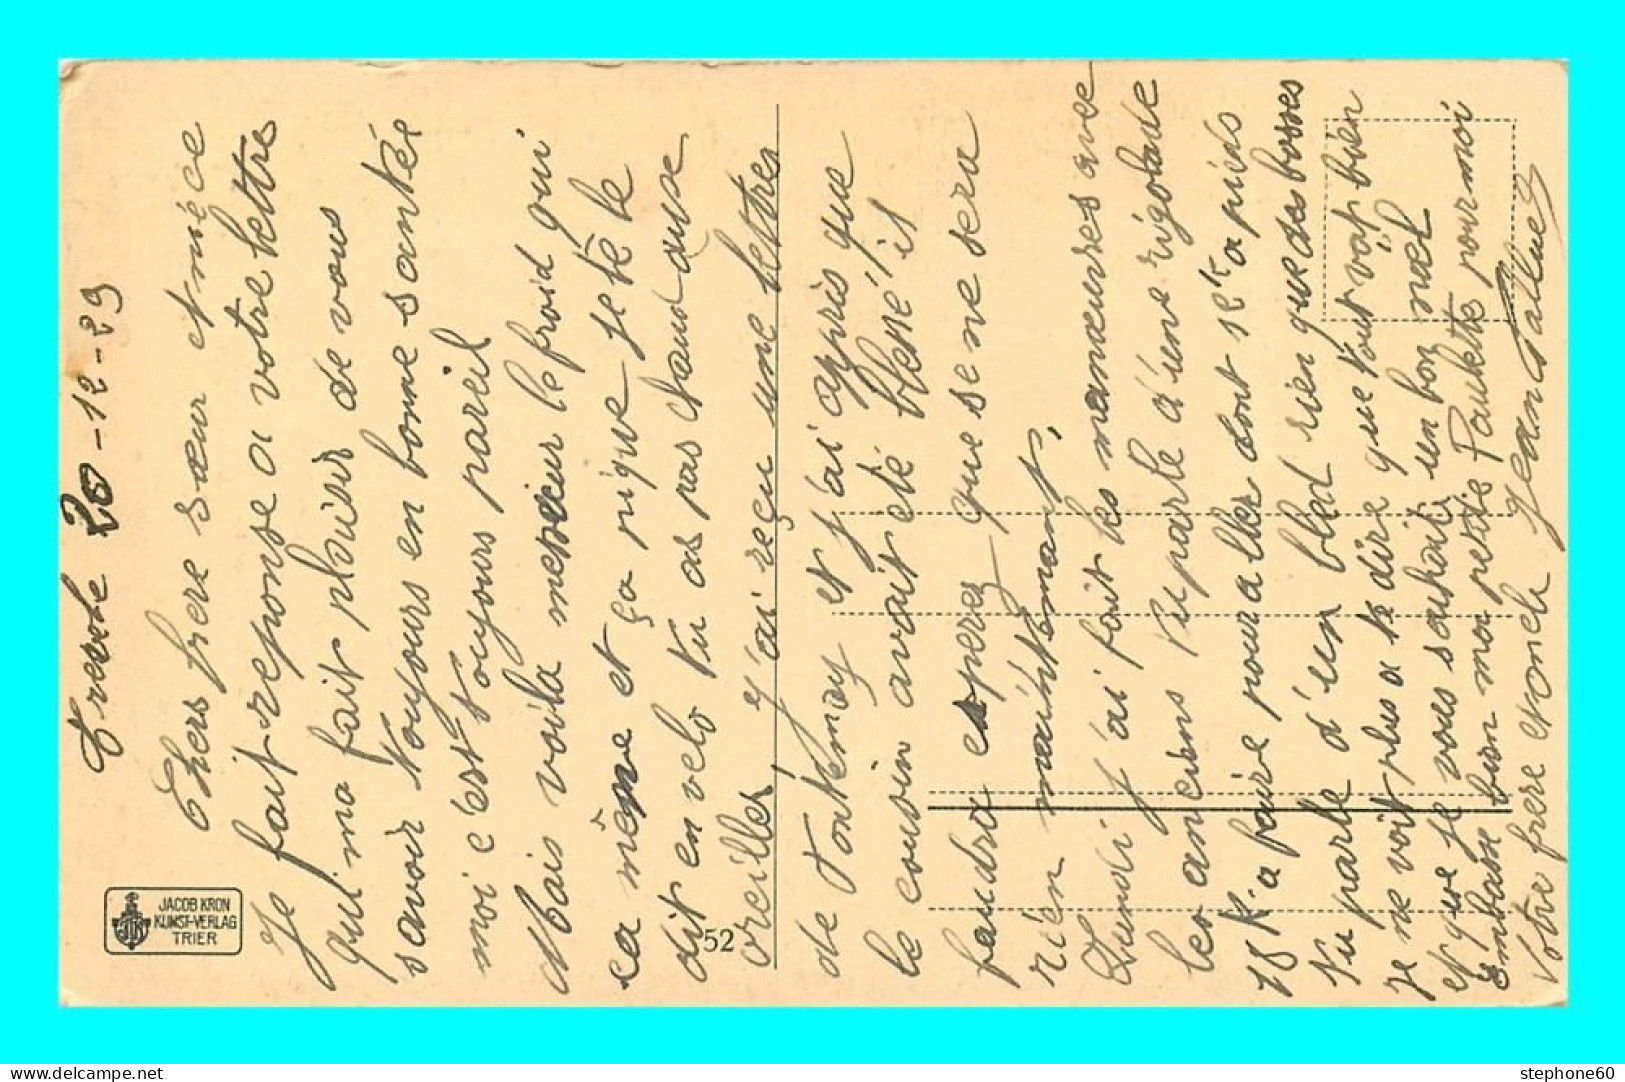 Tresve 20-12-29
Chers frere sœur et niéce
Je fait reponse a votre lettre
qui ma fait plaisir de vous
savoir toujours en bonne santée
moi c'est toujours pareil
Mais voila messieur le froid qui
ca méne et ça pique je te le
dit en velo tu as pas chaud aux
oreilles, j'ai reçu une lettre
de Fontemoy et j'ai apris que
le cousin avait eté blessé, il
faudra esperez que se ne sera
rien maintenant,
Lundi j'ai fait les manœuvres avec
les anciens tu parle d'une rigolade
18 K. a faire pour aller dont 12 K a pieds
tu parle d'un bled rien que des bosses
Je ne voit plus a te dire que tout vas bien
et que je vous souhaite un bon noël
Embasse bien moi petite Paulette pour moi
Votre frere et oncle Jean
JACOB KRON
KUNST-VERLAG
TRIER
52
stephone60
www.delcampe.net